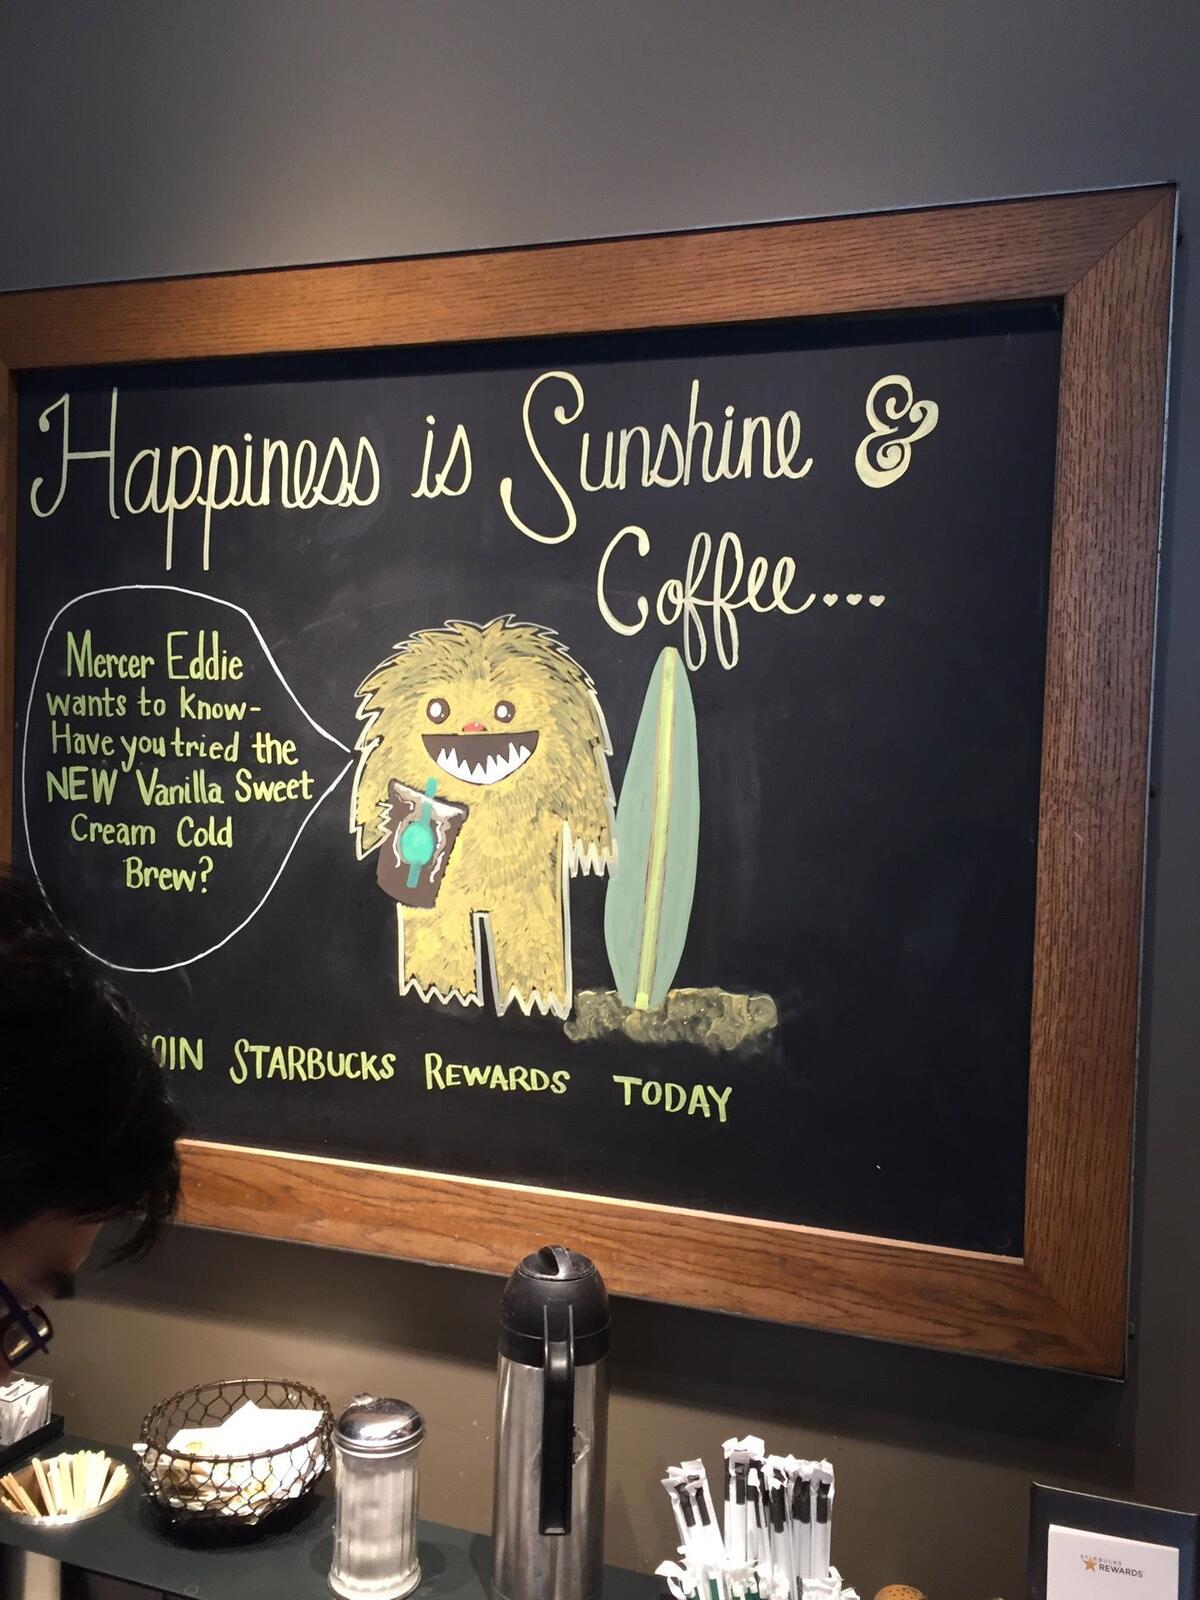 Happiness is Sunshine &
Coffee...
Mercer Eddie
wants to know-
Have you tried the
NEW Vanilla Sweet
Cream Cold
Brew?
OIN STARBUCKS REWARDS TODAY
STARBUCKS
REWARDS